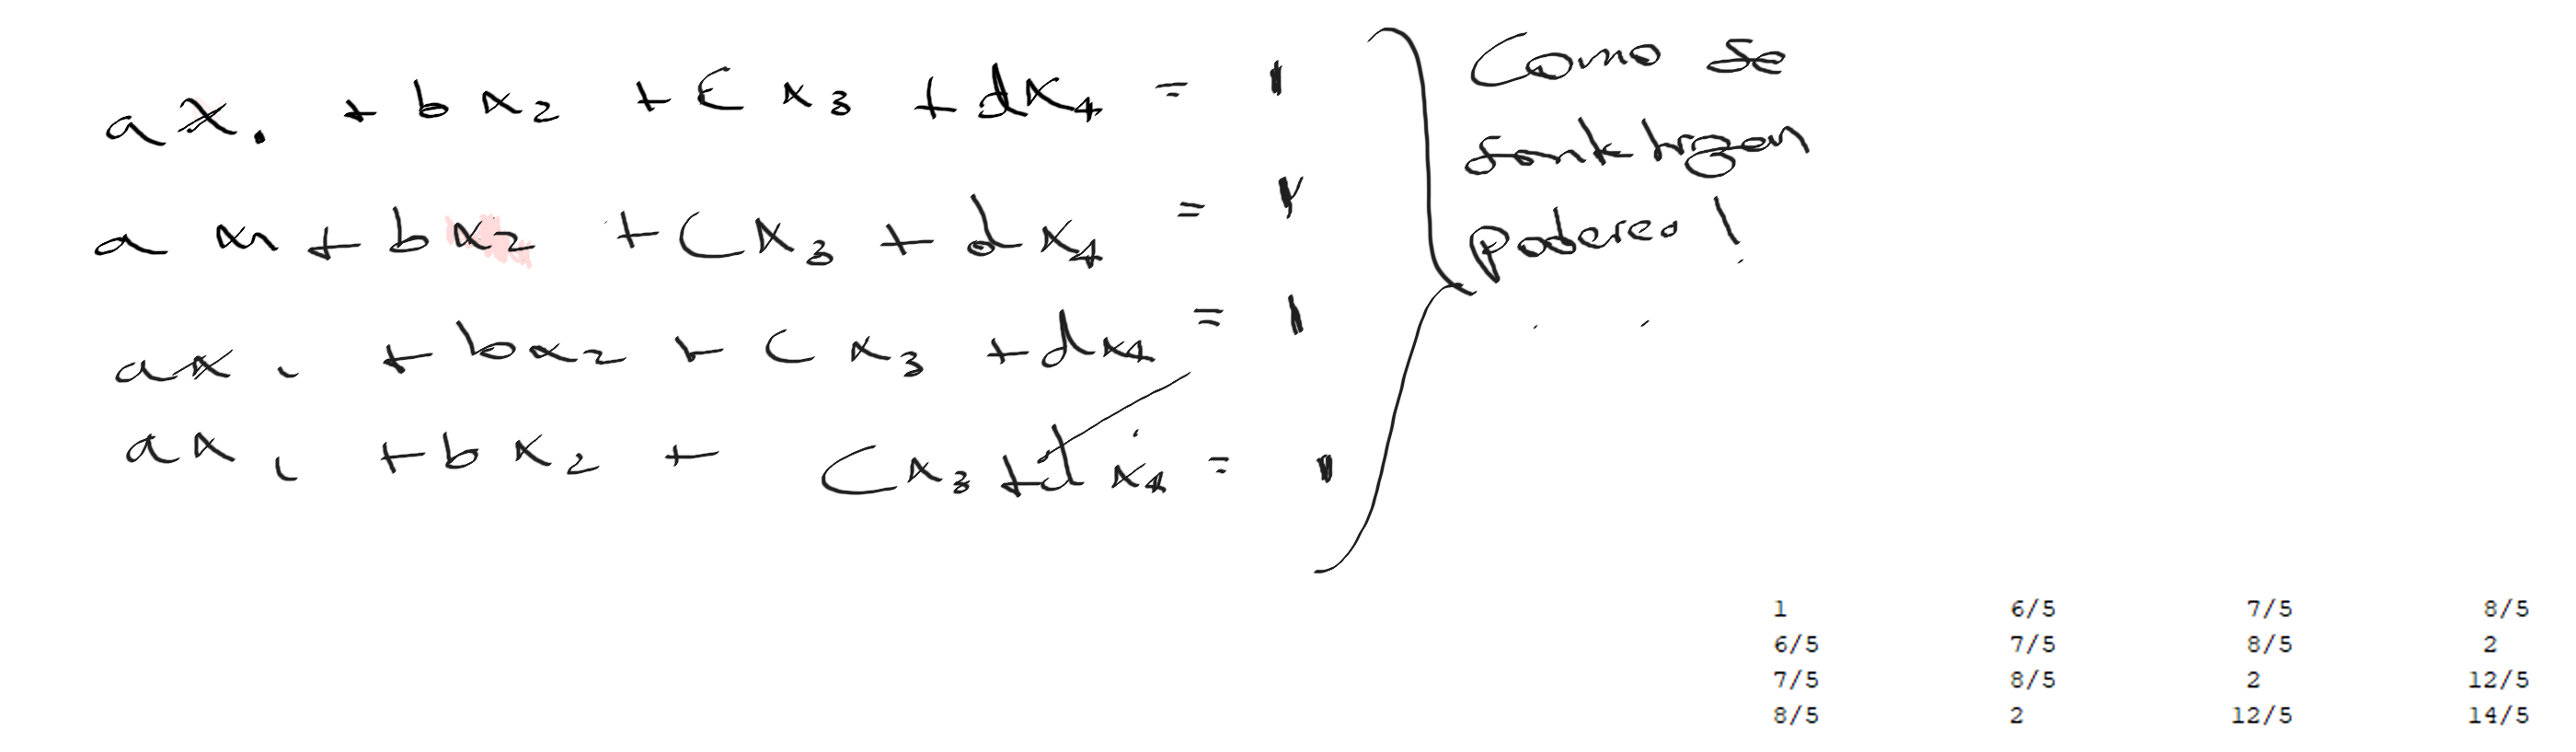 ax. + bx2 + Cx3 + dx4 = 1
a x1 + bx2 + Cx3 + dx4 = 1
ax1 + bx2 + Cx3 + dx4 = 1
ax1 + bx2 + Cx3 + dx4 = 1
Como se
poderes!
1 6/5 7/5 8/5
6/5 7/5 8/5 2
7/5 8/5 2 12/5
8/5 2 12/5 14/5